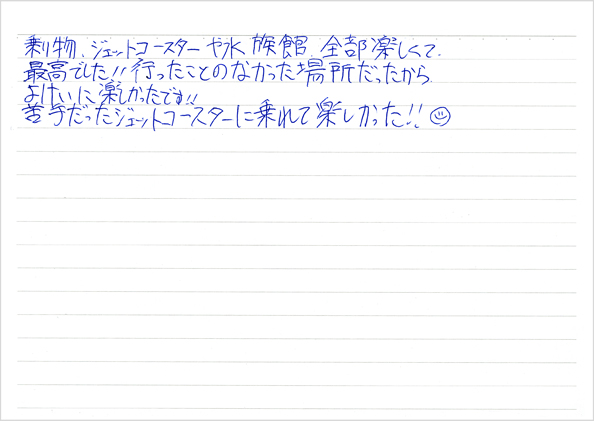 乗り物、ジェットコースターや水族館、全部楽しくて、
最高でした!!行ったことのなかった場所だったから
よけいに楽しかったです!!
苦手だったジェットコースターに乗れて楽しかった!!☺